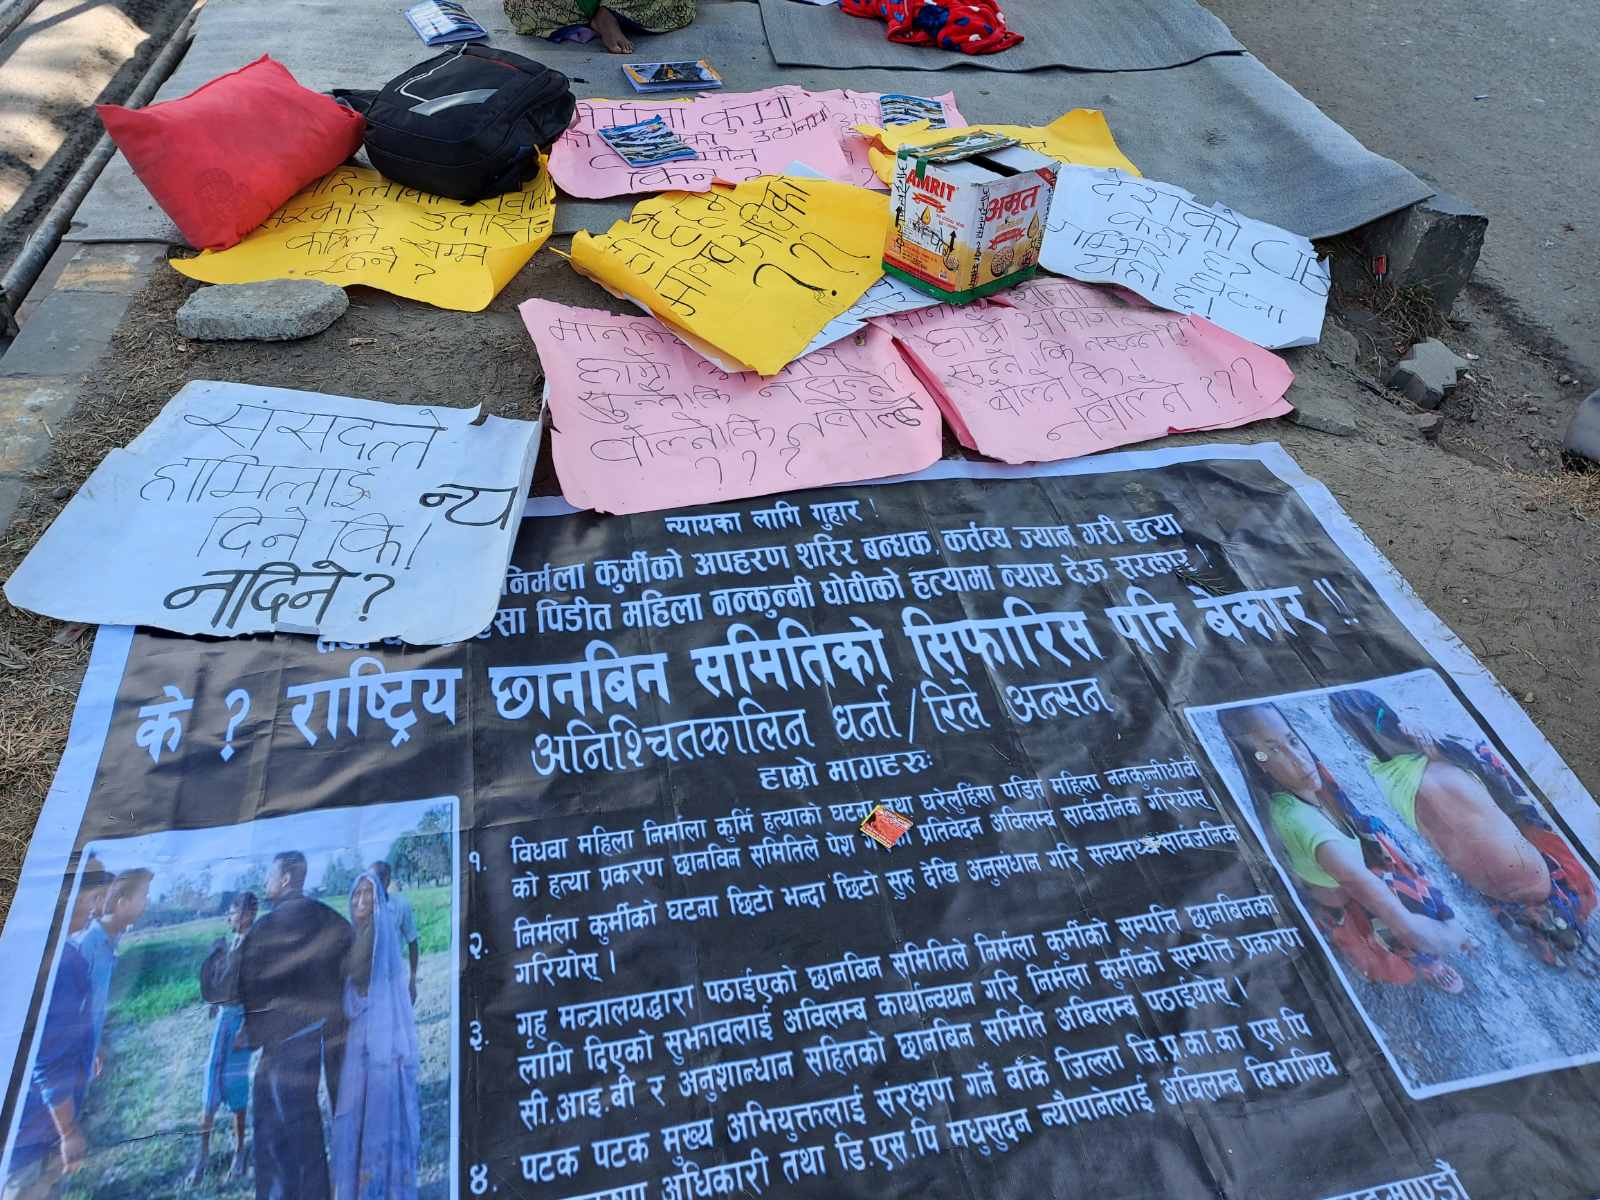 निर्मला कुर्मी
को
उठानमा
मौन
किन ?
सरकार उदासिन
कहिले सम्म
रहने ?
???
AMRIT
अमृत
देशको CIB
कहाँ छ?
गम्भिर घटना
यहाँ छ!
हाम्रो
सुन्ने।कि नसुन्ने?
बोल्ने।कि नबोल्ने
? ? ?
हाम्रो आवाज
सुन्ने।कि नसुन्ने
बोल्ने कि।
नबोल्ने ???
संसदले
हामिलाई
न्य
दिने।कि।
नदिने?
न्यायका लागि गुहार !
निर्मला कुर्मीको अपहरण शरिर बन्धक, कर्तव्य ज्यान गरी हत्या
पिडीत महिला नन्कुन्नी धोवीको हत्यामा न्याय देऊ सरकार !
के ? राष्ट्रिय छानबिन समितिको सिफारिस पनि बेकार !!
अनिश्चितकालिन धर्ना/रिले अन्सन
हाम्रो मागहरुः
१. विधवा महिला निर्माला कुर्मि हत्याको घटना तथा घरेलुहिंसा पडित महिला ननकुन्नीधोवी
को हत्या प्रकरण छानविन समितिले पेश प्रतिवेदन अविलम्ब सार्वजनिक गरियोस्
२. निर्मला कुर्मीको घटना छिटो भन्दा छिटो सुरु देखि अनुसधान गरि सत्यतथ्य सार्वजनिक
गरियोस् ।
३. गृह मन्त्रालयद्धारा पठाईएको छानविन समितिले निर्मला कुर्मीको सम्पत्ति छानबिनका
लागि दिएको सुझावलाई अविलम्ब कार्यान्वयन गरि निर्मला कुर्मीको सम्पत्ति प्रकरण
सी.आइ.वी र अनुशान्धान सहितको छानबिन समिति अबिलम्ब पठाईयोस् ।
४. पटक पटक मुख्य अभियुक्तलाई संरक्षण गर्ने बाँके जिल्ला जि.प्र.का.का एस.पि
अधिकारी तथा डि.एस.पि मधुसुदन न्यौपानेलाई अविलम्ब बिभागिय